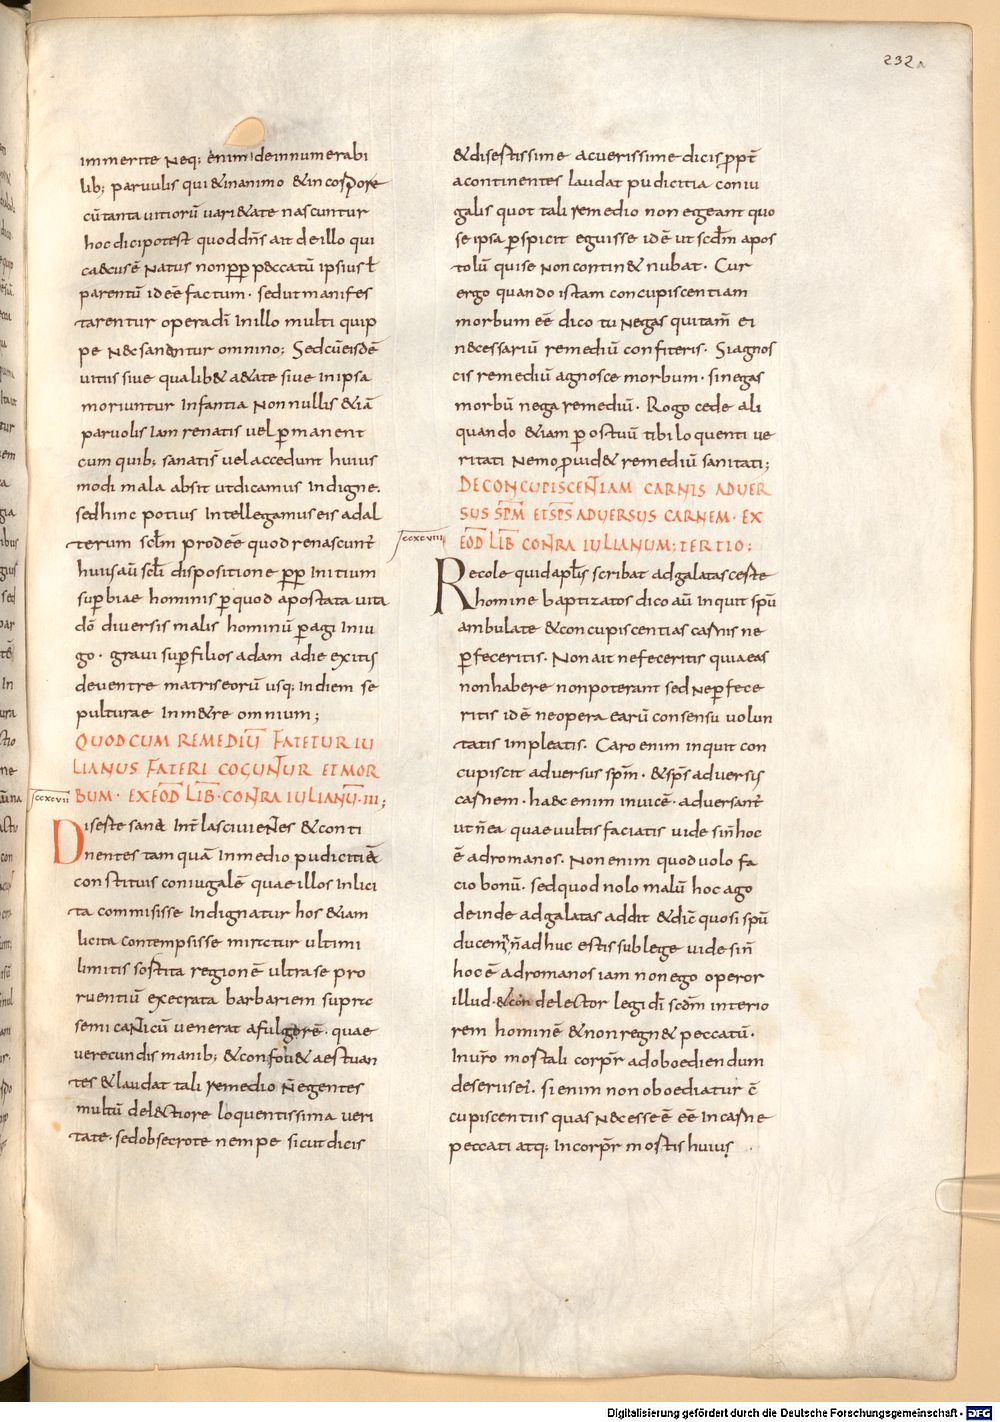 232
immerite Neq; enim deinnumerabi
lib; paruulis qui & inanimo & in corpore
cū tanta uitiorū uari&ate nascuntur
hoc dici potest quod dn̄s ait de illo qui
caecus ē Natus non ꝓp peccatū ipsius ł
parentū id eē factum · sed ut manifes
tarentur opera dī In illo multi quip
pe Nec sanantur omnino; Sed cū eisdē
uitiis siue qualib& a&ate siue In ipsa
moriuntur Infantia Non nullis &iā
paruolis Iam renatis uel ꝑmanent
cum quib; sanatis uel accedunt huius
modi mala absit ut dicamus Indigne.
sed hinc potius Intellegamus eis ad al
terum sc̄lm prodeē quod renascunt̄
huius aū sc̄li dispositione ꝓp Initium
suꝑbiae hominis ꝑquod apostata uita
dō diuersis malis hominū ꝑagi In iu
go · graui suꝑ filios adam a die exitis
de uentre matris eorū usq; In diem se
pulturae In m&re omnium;
QUOD CUM REMEDIŪ FATETUR IU
LIANUS FATERI COGUNTUR ET MOR
BUM · EX EOD̄ LIB̄ · CONTRA IULIANŪ · III;
ccxcvii
Diserte sane Int̄ lasciuientes & conti
nentes tam quā In medio pudicitiā
constituis coniugalē quae illos Inlici
ta commisisse Indignatur hos &iam
licita contempsisse miretur ultimi
limitis sortita regionē ultra se pro
ruentiū execrata barbariem supre
semicanticū uenerat a fulgorē · quae
uerecundis manib; & confou& aestuan
tes & laudat tali remedio N̄ egentes
multū delectiore loquentissima ueri
tate · sed obsecro te nempe sicut dicis
& disertissime ac uerissime dicis ꝓpt̄
a continentes laudat pudicitia coniu
galis quot tali remedio non egeant quo
se ipsa ꝑspicit eguisse id ē ut scdm̄ apos
tolū qui se Non contin& nubat · Cur
ergo quando istam concupiscentiam
morbum eē dico tu Negas qui tam̄ ei
necessariū remediū confiteris · Si agnos
cis remediū agnosce morbum · si negas
morbū nega remediū · Rogo cede ali
quando &iam ꝑ os tuū tibi loquenti ue
ritati Nemo ꝓuid& remediū sanitati;
DE CONCUPISCENTIAM CARNIS ADUER
SUS SPM̄ ET SPS̄ ADUERSUS CARNEM · EX
EOD̄ LIB̄ CONTRA IULIANUM; TERTIO:
ccxcviii
Recole quid apl̄s scribat ad galatas certe
homine baptizatos dico aū Inquit spū
ambulate & concupiscentias carnis ne
ꝑfeceritis · Non ait ne feceritis quia eas
non habere non poterant sed Ne ꝑfece
ritis id ē ne opera earū consensu uolun
tatis impleatis · Caro enim inquit con
cupiscit aduersus spm̄ · & sps̄ aduersis
carnem · haec enim inuicē · aduersant̄
ut n̄ ea quae uultis faciatis uide si n̄ hoc
ē ad romanos · Non enim quod uolo fa
cio bonū · sed quod nolo malū hoc ago
deinde ad galatas addit & dic̄ quo si spū
ducem̄ n̄ adhuc estis sub lege uide si n̄
hoc ē ad romanos iam non ego operor
illud · & con delector legi dī scdm̄ interio
rem hominē & non regn& peccatū ·
In ur̄o mortali corpr̄ ad oboediendum
deseriis ei · si enim non oboediatur c̄
cupiscentiis quas Necesse ē eē In carne
peccati atq; In corpr̄ mortis huius ·
Digitalisierung gefördert durch die Deutsche Forschungsgemeinschaft - DFG